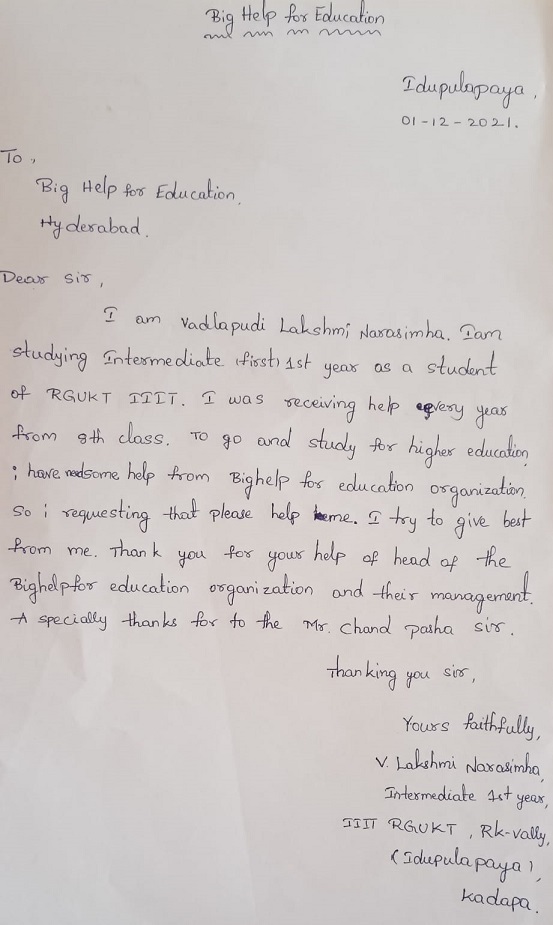 Big Help for Education
Idupulapaya,
01-12-2021.
To,
Big Help for Education.
Hyderabad.
Dear sir,
I am Vadlapudi Lakshmi Narasimha. Iam
studying Intermediate (first) 1st year as a student
of RGUKT IIIT. I was receiving help every year
from 8th class. To go and study for higher education
i have needsome help from Bighelp for education organization.
So i requesting that please help me. I try to give best
from me. Thank you for your help of head of the
Bighelpfor education organization and their management.
A specially thanks for to the Mr. Chand pasha sir.
Thanking you sir,
Yours faithfully,
V. Lakshmi Narasimha,
Intermediate 1st year,
IIIT RGUKT, Rk-vally,
(Idupulapaya),
Kadapa.